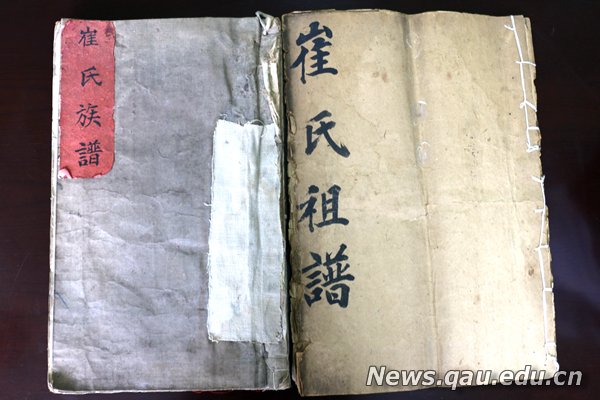 崔氏族譜
崔氏祖譜
News.qau.edu.cn